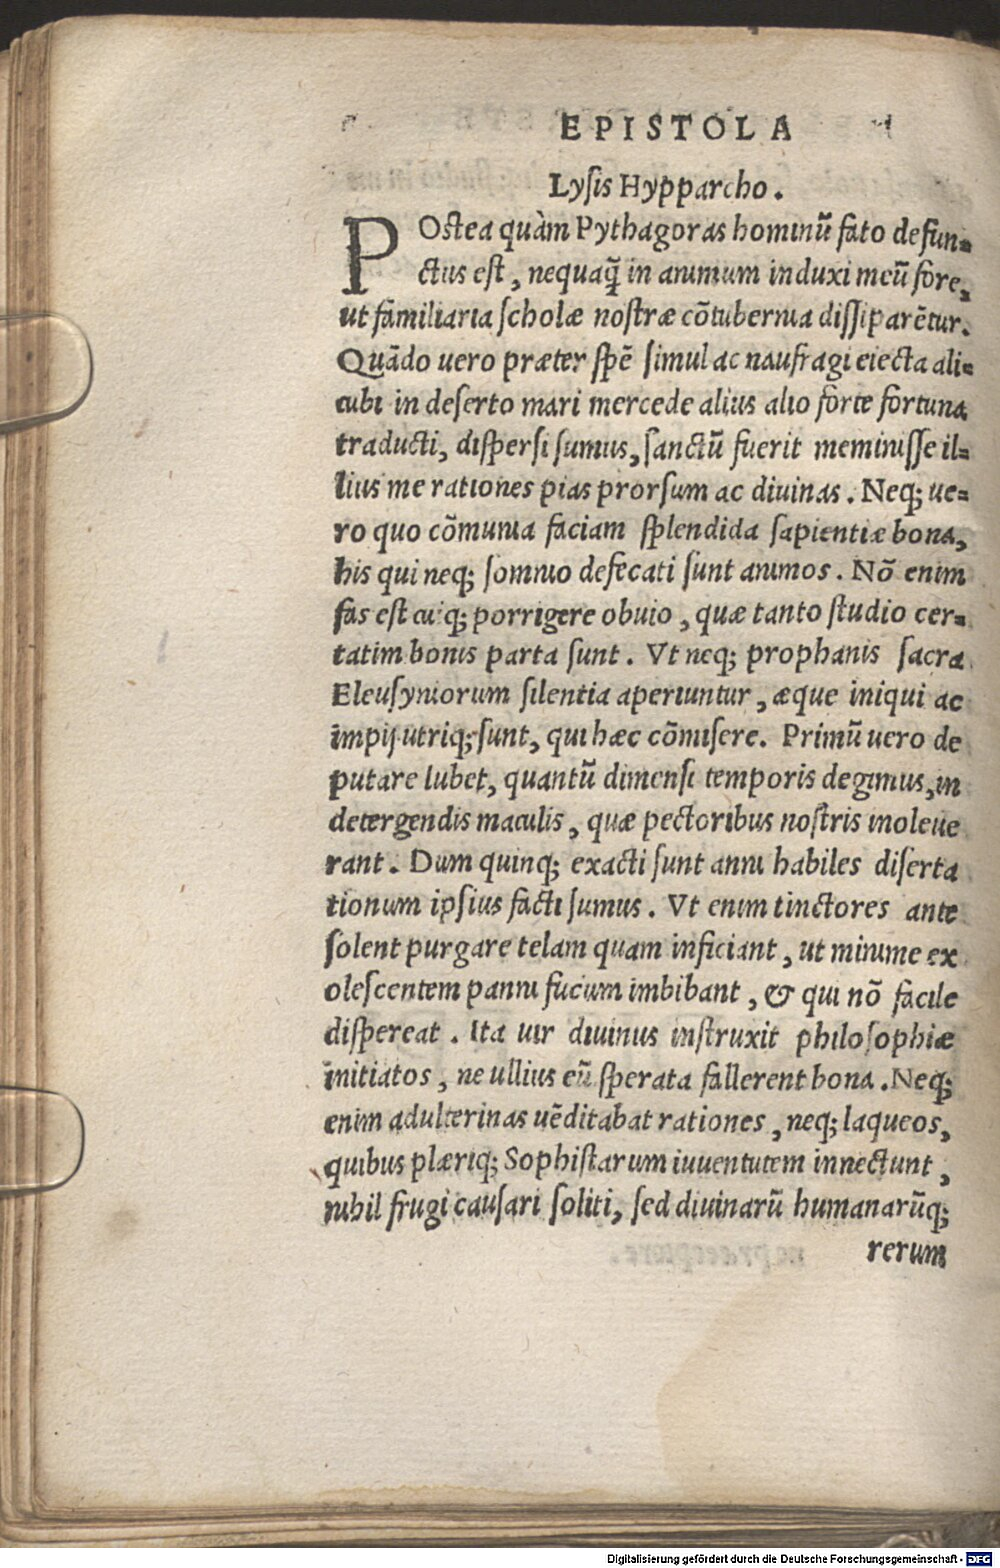 EPISTOLA
Lysis Hypparcho.
POstea quàm Pythagoras hominũ fato defun-
ctus est, nequaq̃ in animum induxi meũ fore,
ut familiaria scholæ nostræ cõtubernia dissiparẽtur.
Quãdo uero præter spẽ simul ac naufragi eiecta ali-
cubi in deserto mari mercede alius alio forte fortuna
traducti, dispersi sumus, sanctũ fuerit meminisse il-
lius me rationes pias prorsum ac diuinas. Neq; ue-
ro quo cõmunia faciam splendida sapientiæ bona,
his qui neq; somnio defecati sunt animos. Nõ enim
fas est cuiq; porrigere obuio, quæ tanto studio cer-
tatim bonis parta sunt. Vt neq; prophanis sacra
Eleusyniorum silentia aperiuntur, æque iniqui ac
impij utriq; sunt, qui hæc cõmisere. Primũ uero de
putare lubet, quantũ dimensi temporis degimus, in
detergendis maculis, quæ pectoribus nostris inoleue
rant. Dum quinq; exacti sunt anni habiles diserta
tionum ipsius facti sumus. Vt enim tinctores ante
solent purgare telam quam inficiant, ut minime ex
olescentem panni fucum imbibant, & qui nõ facile
dispereat. Ita uir diuinus instruxit philosophiæ
initiatos, ne ullius eũ sperata fallerent bona. Neq;
enim adulterinas uẽditabat rationes, neq; laqueos,
quibus plæriq; Sophistarum iuuentutem innectunt,
nihil frugi causari soliti, sed diuinarũ humanarũq;
rerum
Digitalisierung gefördert durch die Deutsche Forschungsgemeinschaft - DFG